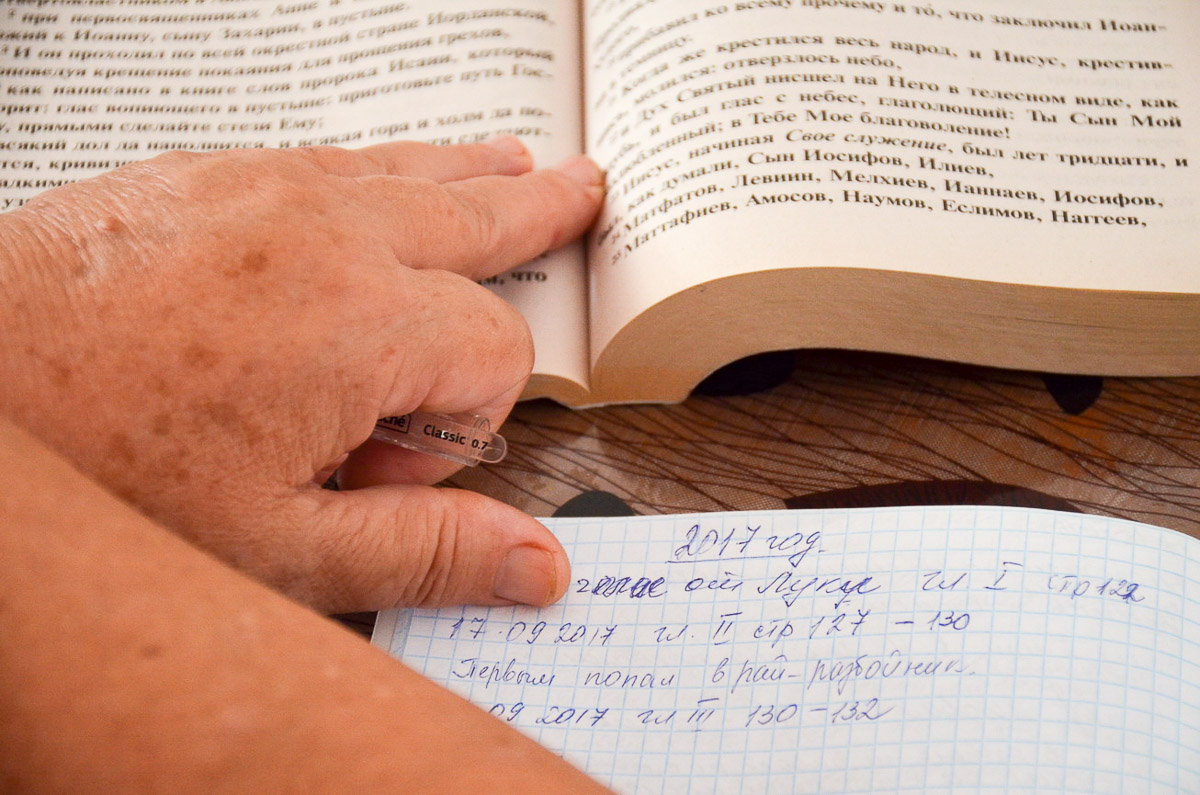 при первосвященниках Анне и
к Иоанну, сыну Захарии, в пустыне.
³ И он проходил по всей окрестной стране Иорданской,
проповедуя крещение покаяния для прощения грехов,
как написано в книге слов пророка Исаии, который
глас вопиющего в пустыне: приготовьте путь Гос-
прямыми сделайте стези Ему;
дол да наполнится, и всякая гора и холм да по-
что
ко всему прочему и то́, что заключил Иоан-
темницу.
Когда же крестился весь народ, и Иисус, крестив-
молился: отверзлось небо,
и Дух Святый нисшел на Него в телесном виде, как
и был глас с небес, глаголющий: Ты Сын Мой
в Тебе Мое благоволение!
Иисус, начиная Свое служение, был лет тридцати, и
как думали, Сын Иосифов, Илиев,
²⁴ Матфатов, Левиин, Мелхиев, Ианнаев, Иосифов,
²⁵ Маттафиев, Амосов, Наумов, Еслимов, Наггеев,
Classic 0.7
2017 год.
от Луки гл I стр 122
17.09 2017 гл. II стр 127 – 130
Первым попал в рай-разбойник.
09 2017 гл III 130 – 132